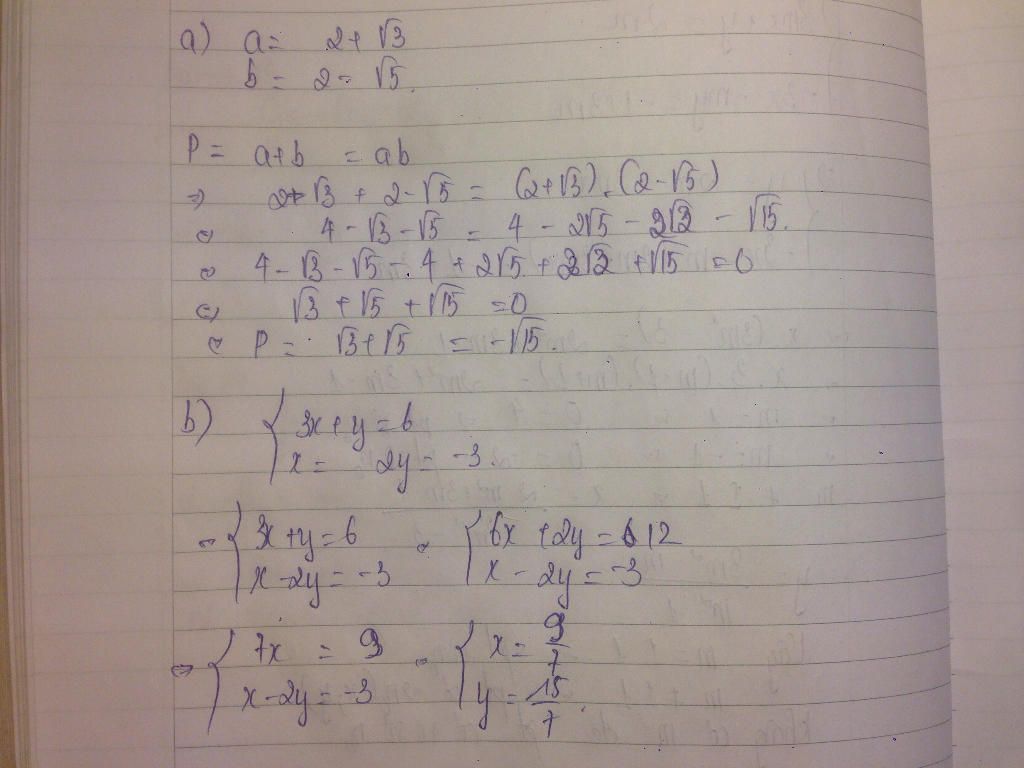 a) a = 2 + √3
b = 2 - √5.
P = a+b = ab
=> 2+√3 + 2-√5 = (2+√3).(2-√5)
<=> 4-√3-√5 = 4 - 2√5 - 2√3 - √15.
<=> 4-√3-√5 - 4 + 2√5 + 2√3 + √15 = 0
<=> √3 + √5 + √15 = 0
<=> P = √3+√5 = -√15.
b) { 3x+y = 6
x = 2y = -3.
<=> { 3x+y = 6 <=> { 6x + 2y = 12
x-2y = -3 x - 2y = -3
<=> { 7x = 9 <=> { x = 9/7
x-2y = -3 y = 15/7.